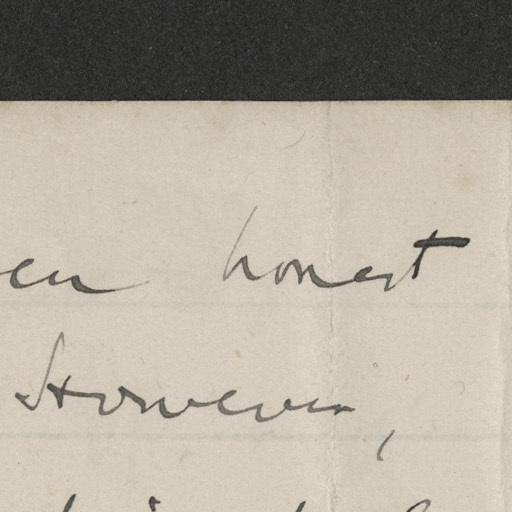 en honest
However,